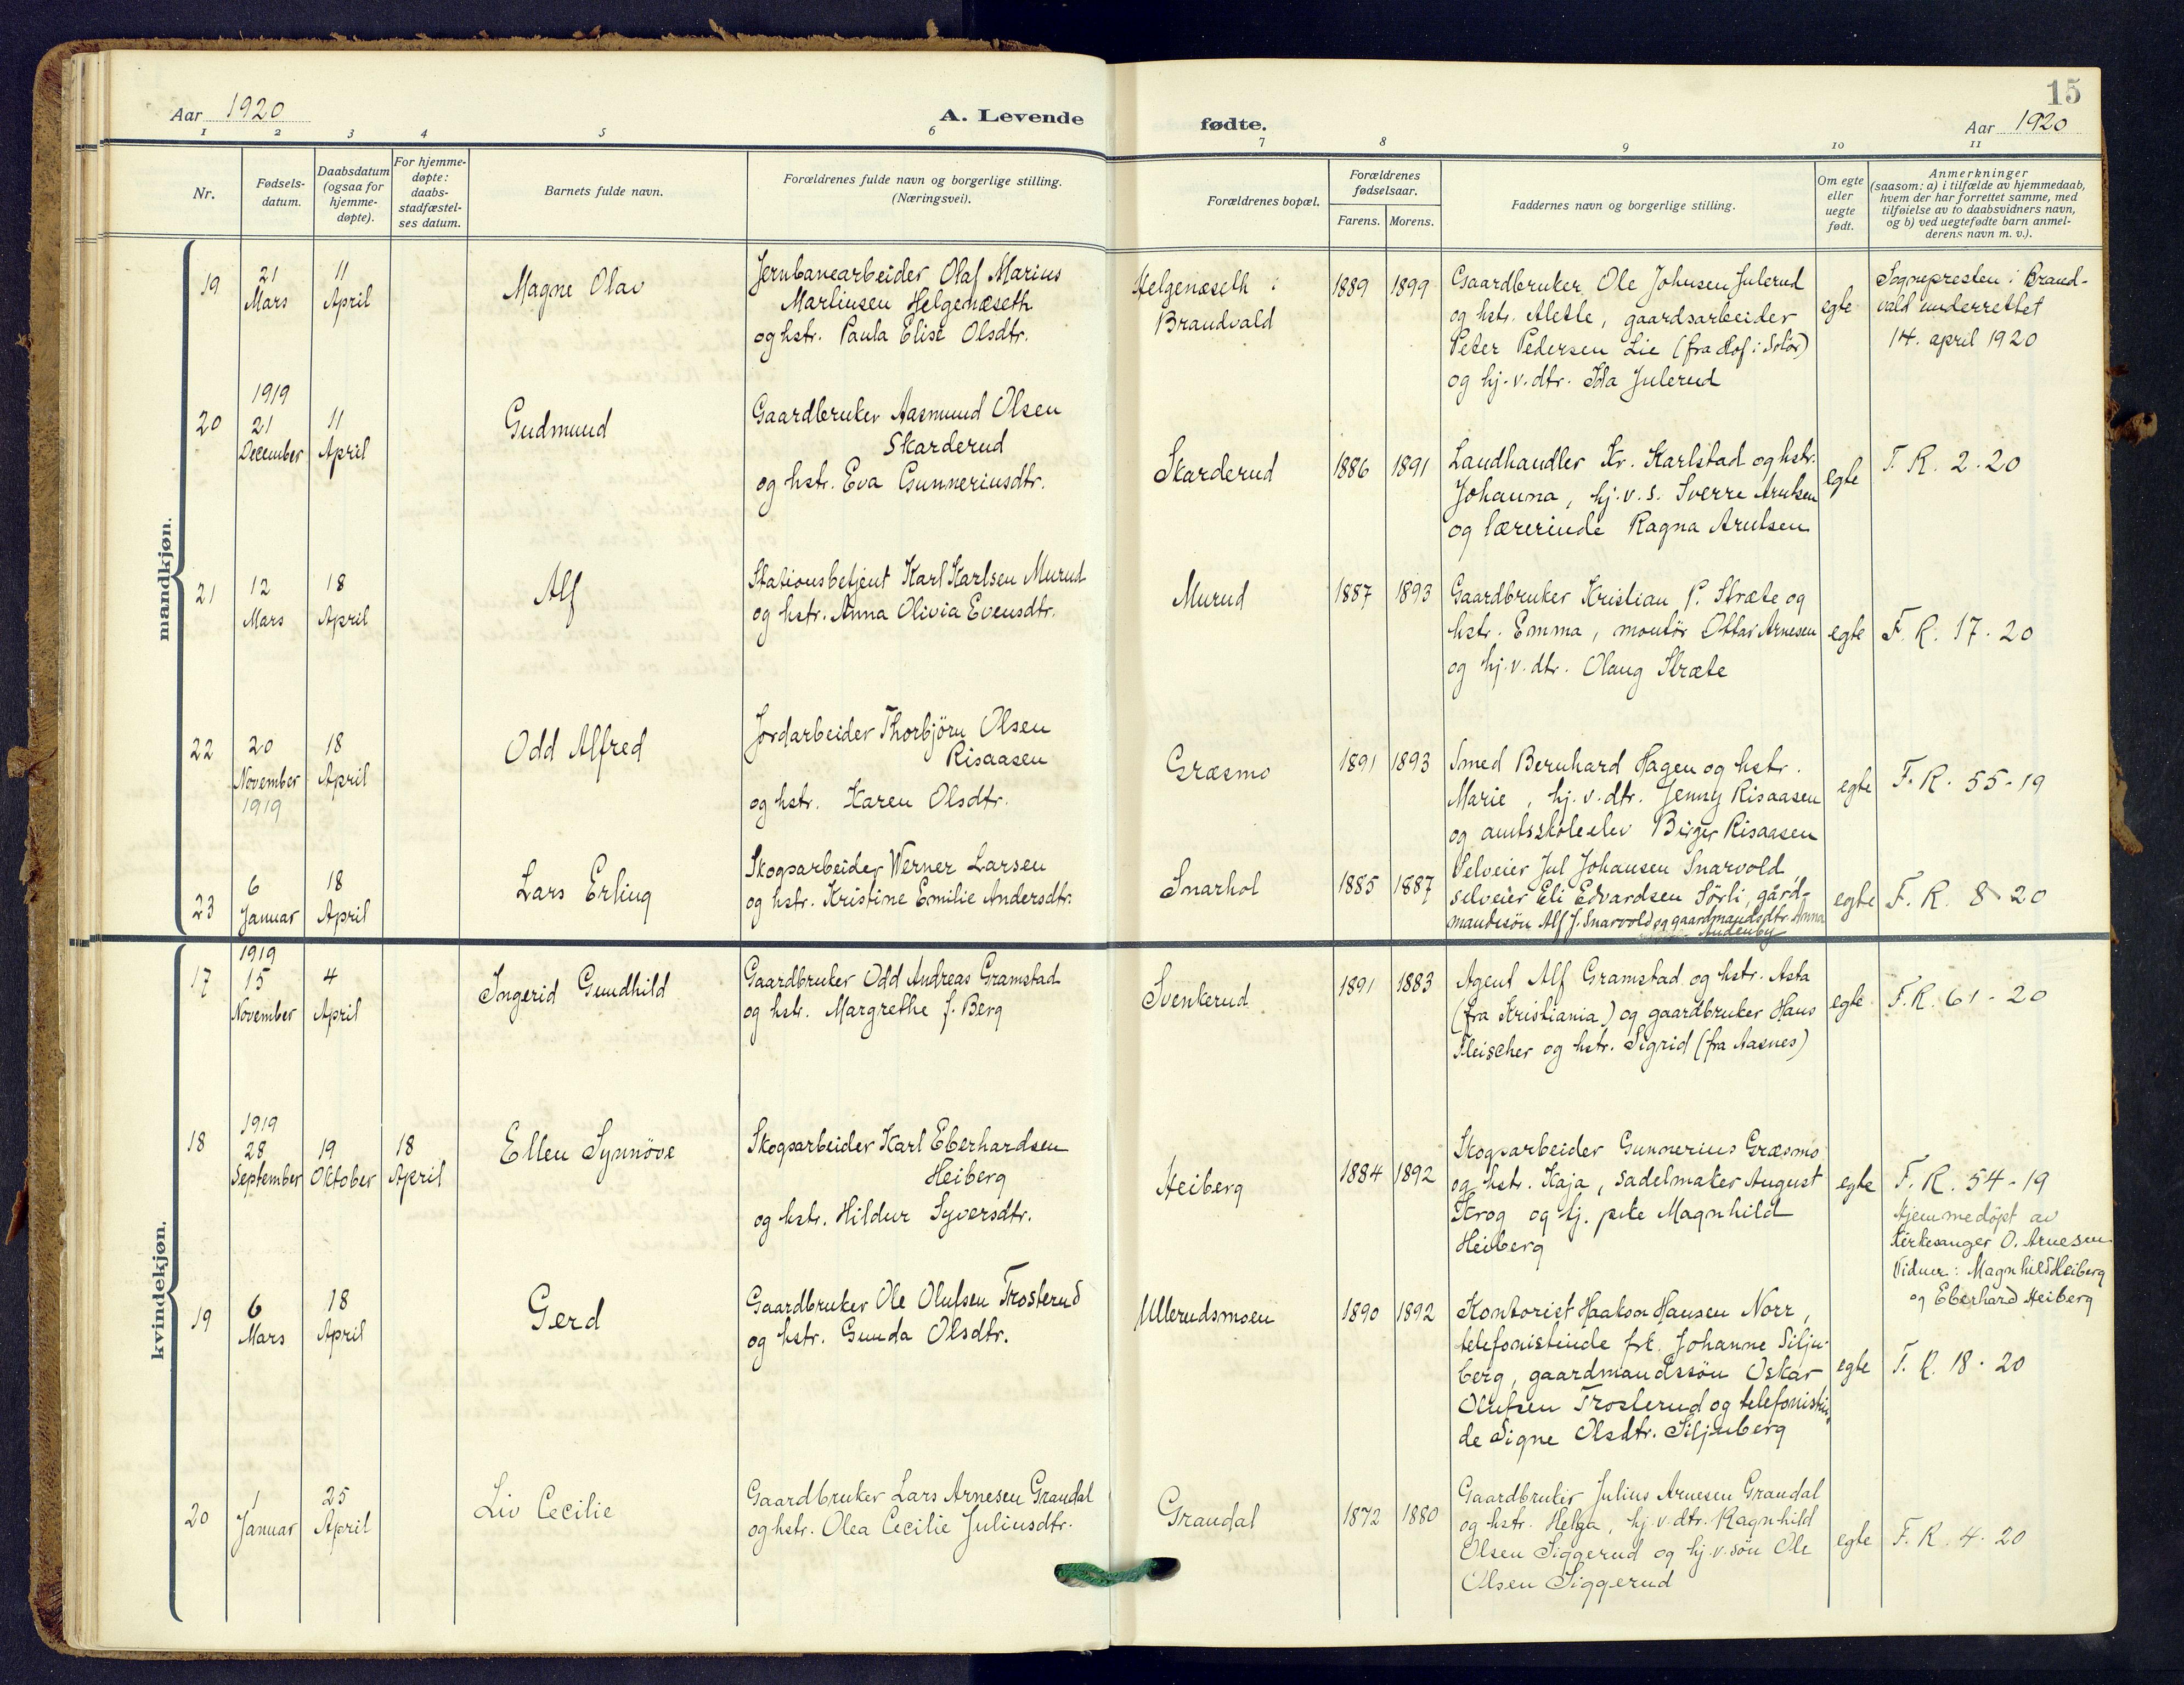 15
Aar 1920
A. Levende
fødte.
Aar 1920
1 2 3 4 5 6 7 8 9 10 11
Nr.
Fødsels-
datum.
Daabsdatum
(ogsaa for
hjemme-
døpte).
For hjemme-
døpte:
daabs-
stadfæstel-
ses datum.
Barnets fulde navn.
Forældrenes fulde navn og borgerlige stilling.
(Næringsvei).
Forældrenes bopæl.
Forældrenes
fødselsaar.
Farens. Morens.
Faddernes navn og borgerlige stilling.
Om egte
eller
uegte
født.
Anmerkninger
(saasom: a) i tilfælde av hjemmedaab,
hvem der har forrettet samme, med
tilføielse av to daabsvidners navn,
og b) ved uegtefødte barn anmel-
derens navn m. v.).
mandkjøn.
19
21
Mars
11
April
Magne Olav
Jernbanearbeider Olaf Marius
Martinsen Helgenæseth
og hstr. Paula Elise Olsdtr.
Helgenæseth i
Brandvald
1889 1899
Gaardbruker Ole Johnsen Julerud
og hstr. Alette, gaardsarbeider
Peter Pedersen Lie (fra Hof i Solør)
og hj. v. dtr. Ida Julerud
egte
Sognepresten i Brand-
vald underrettet
14. april 1920
20
1919
21
December
11
April
Gudmund
Gaardbruker Aasmund Olsen
Skarderud
og hstr. Eva Gunneriusdtr.
Skarderud
1886 1891
Landhandler Kr. Karlstad og hstr.
Johanna, hj. v. s. Sverre Arntsen
og lærerinde Ragna Arntsen
egte
F. R. 2. 20
21
12
Mars
18
April
Alf
Stationsbetjent Karl Karlsen Murud
og hstr. Anna Olivia Evensdtr.
Murud
1887 1893
Gaardbruker Kristian P. Stræte og
hstr. Emma, montör Ottar Arnesen
og hj. v. dtr. Olaug Stræte
egte
F. R. 17. 20
22
20
November
1919
18
April
Odd Alfred
Jordarbeider Thorbjörn Olsen
Risaasen
og hstr. Karen Olsdtr.
Græsmo
1891 1893
Smed Bernhard Hagen og hstr.
Marie, hj. v. dtr. Jenny Risaasen
og amtsskoleelev Birger Risaasen
egte
F. R. 55-19
23
6
Januar
18
April
Lars Erling
Skogsarbeider Werner Larsen
og hstr. Kristine Emilie Andersdtr.
Snarhol
1885 1887
Selveier Jul Johansen Snarvold
selveier Eli Edvardsen Sørli, gård-
mandssön Alf J. Snarvold og gaardmandsdtr. Anna
Audenby
egte
F. R. 8 20
kvindekjøn.
17
1919
15
November
4
April
Ingerid Gundhild
Gaardbruker Odd Andreas Gramstad
og hstr. Margrethe f. Berg
Svenkerud
1891 1883
Agent Alf Gramstad og hstr. Asta
(fra Kristiania) og gaardbruker Hans
Fleischer og hstr. Sigrid (fra Aasnes)
egte
F. R. 61 - 20
18
1919
28
September
19
Oktober
18
April
Ellen Synnöve
Skogsarbeider Karl Eberhardsen
Heiberg
og hstr. Hildur Syversdtr.
Heiberg
1884 1892
Skogsarbeider Gunnerius Græsmo
og hstr. Kaja, sadelmaker August
Krog og hj. pike Magnhild
Heiberg
egte
F. R. 54 - 19
Hjemmedöpt av
Kirkesanger O. Arnesen
Vidner: Magnhild Heiberg
og Eberhard Heiberg
19
6
Mars
18
April
Gerd
Gaardbruker Ole Olufsen Trosterud
og hstr. Gunda Olsdtr.
Ullerudsmoen
1890 1892
Kontorist Haakon Hansen Norr,
telefonistinde frk. Johanne Silju-
berg, gaardmandssön Oskar
Olufsen Trosterud og telefonistin-
de Signe Olsdtr. Siljuberg
egte
F. R. 18. 20
20
1
Januar
25
April
Liv Cecilie
Gaardbruker Lars Arnesen Grandal
og hstr. Olea Cecilie Juliusdtr.
Grandal
1872 1880
Gaardbruker Julius Arnesen Grandal
og hstr. Helga, hj. v. dtr. Ragnhild
Olsen Siggerud og hj. v. sön Ole
Olsen Siggerud
egte
F. R. 4. 20